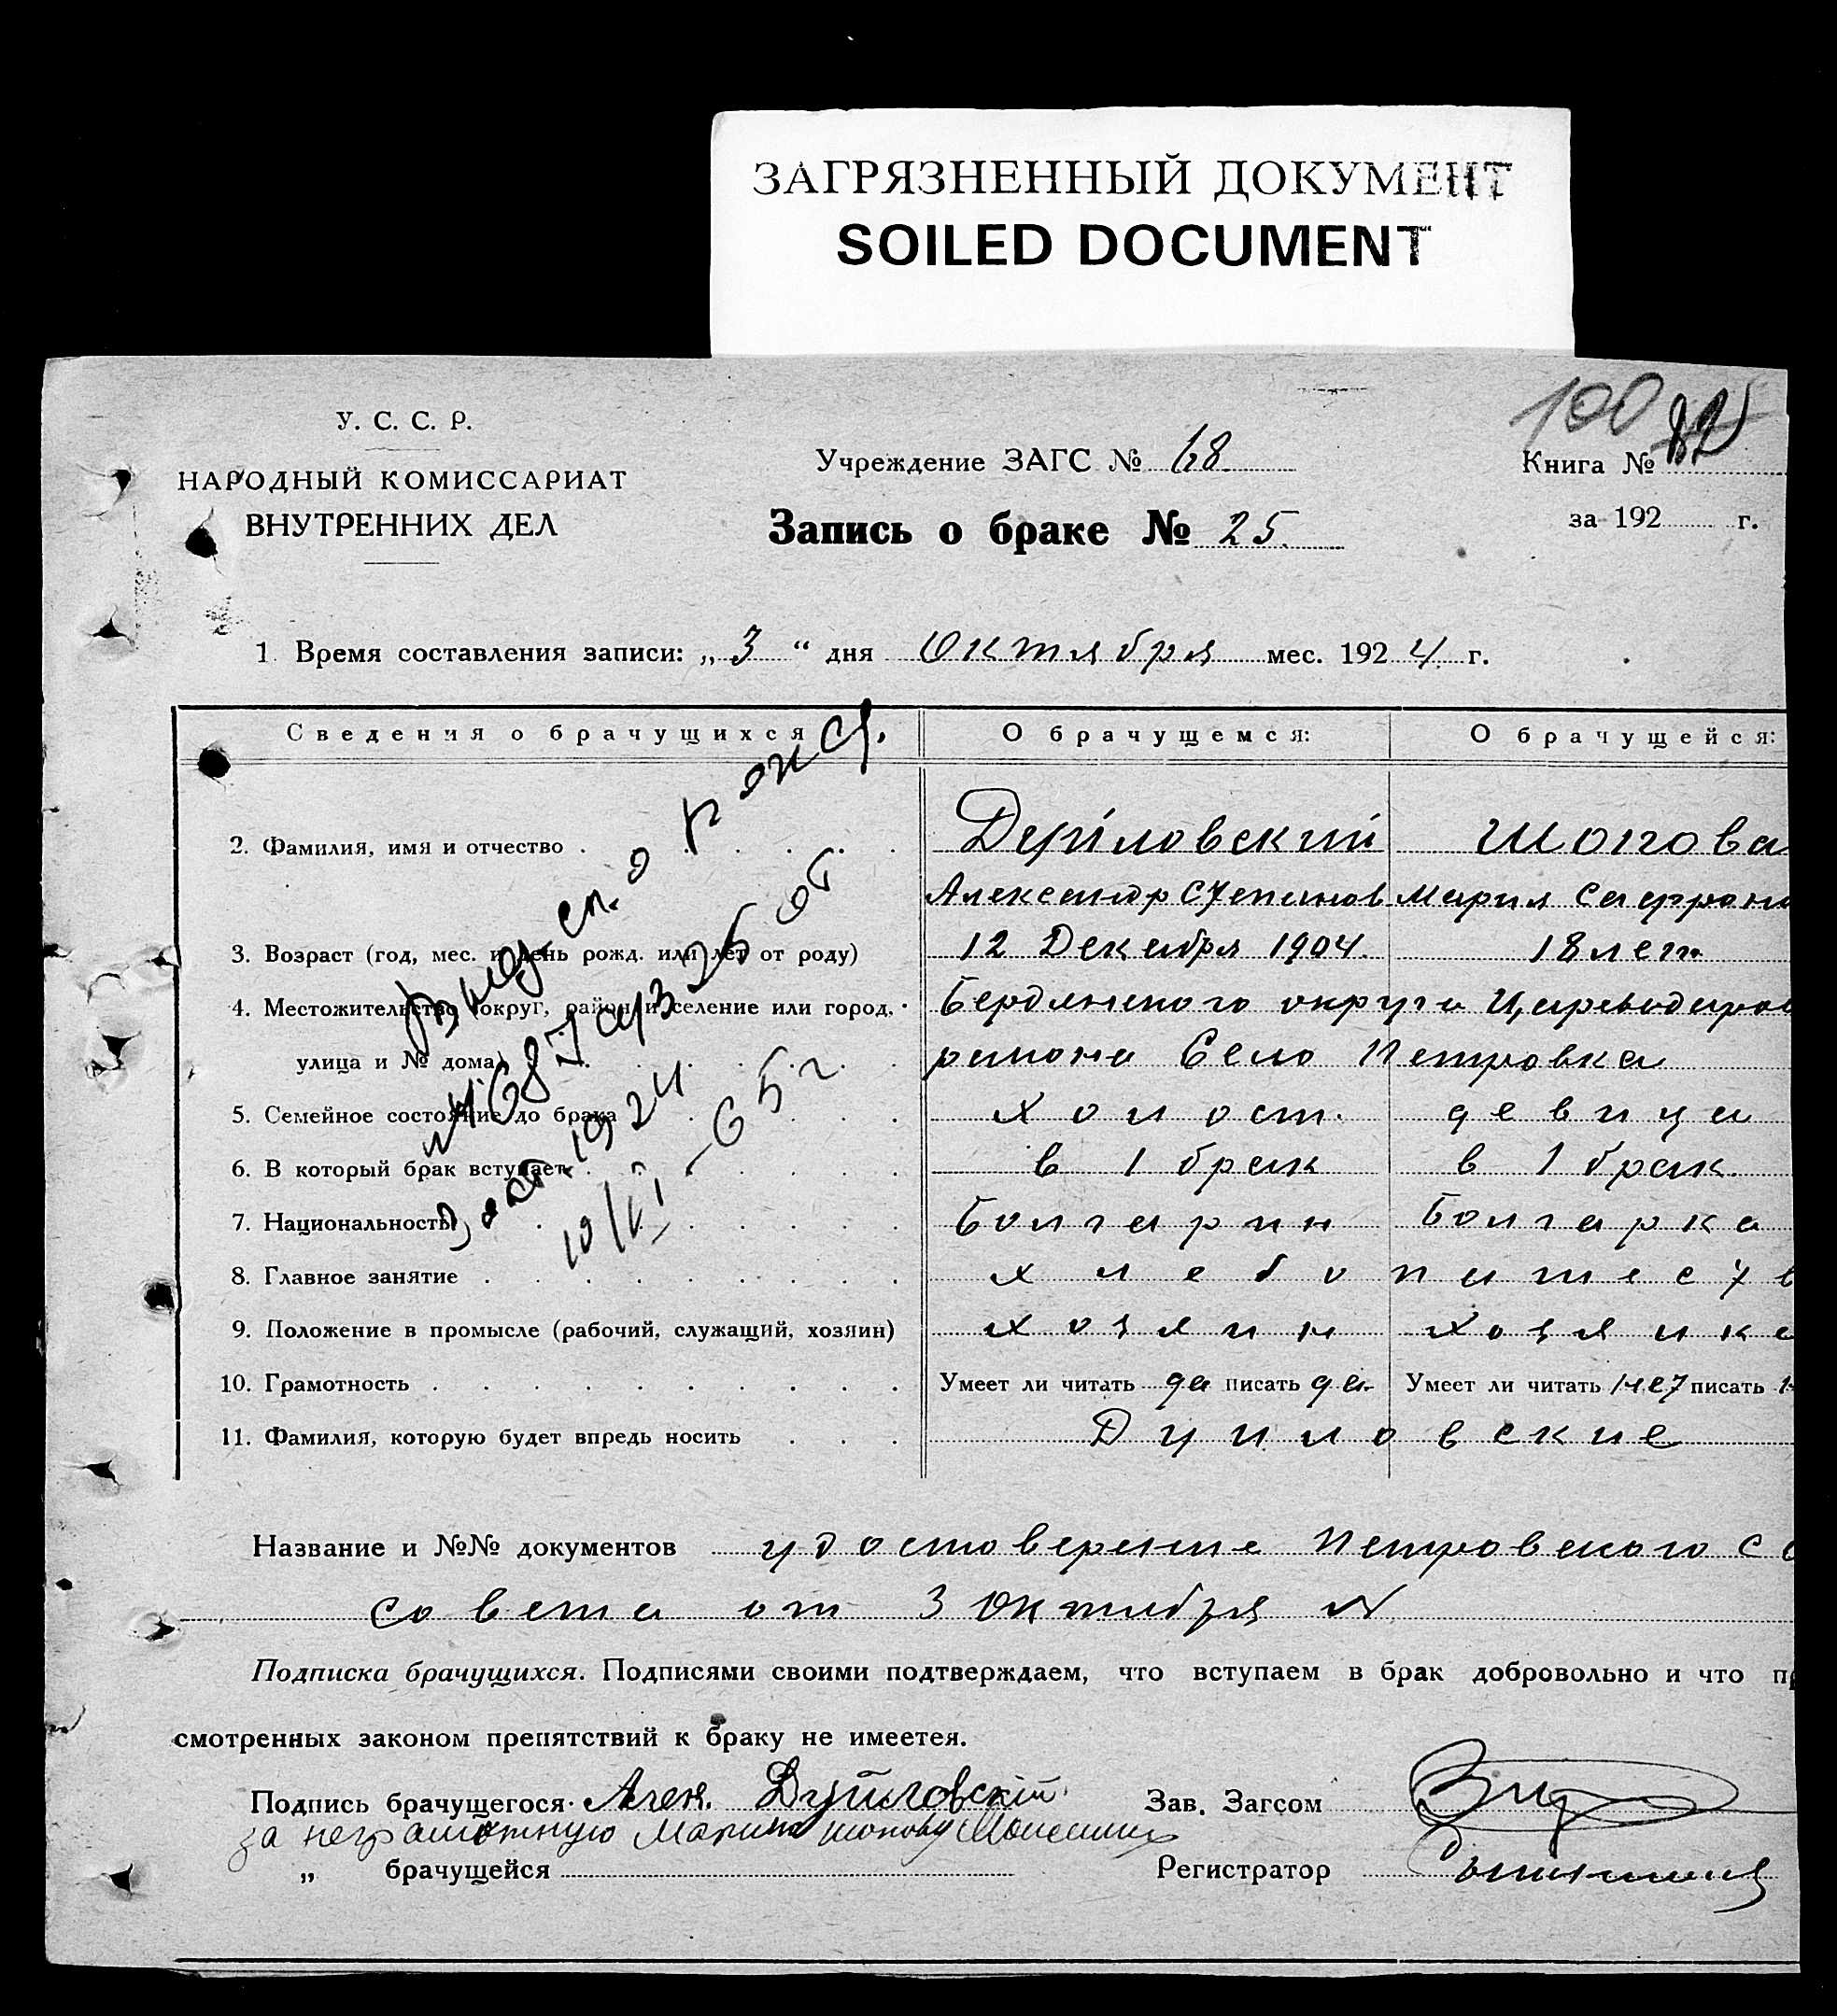 ЗАГРЯЗНЕННЫЙ ДОКУМЕНТ
SOILED DOCUMENT
У. С. С. Р.
НАРОДНЫЙ КОМИССАРИАТ
ВНУТРЕННИХ ДЕЛ
Учреждение ЗАГС № 68
Запись о браке № 25.
100 82
Книга №
за 192 г.
1. Время составления записи: „3“ дня Октября мес. 1924 г.
Сведения о брачущихся О брачущемся: О брачущейся:
2. Фамилия, имя и отчество Шопова
Александр Степанов Мария Сафроно
3. Возраст (год, мес. и день рожд. или лет от роду) 12 Декабря 1904. 18 лет
4. Местожительство (округ, район и селение или город, Бердянского округа
улица и № дома) района Село Петровка
5. Семейное состояние до брака холост. девица
6. В который брак вступает в 1 брак в 1 брак
7. Национальность Болгарин Болгарка
8. Главное занятие хлебопашеств
9. Положение в промысле (рабочий, служащий, хозяин) хозяин хозяйка
10. Грамотность Умеет ли читать да писать да Умеет ли читать нет писать н
11. Фамилия, которую будет впредь носить Дуйловские
1924
65 г
Название и №№ документов удостоверение Петровского с
совета от 3 Октября №
Подписка брачущихся. Подписями своими подтверждаем, что вступаем в брак добровольно и что пр
смотренных законом препятствий к браку не имеетея.
Подпись брачущегося Алек. Дуйловский Зав. Загсом
за неграмотную Марию Шопову
„ брачущейся Регистратор